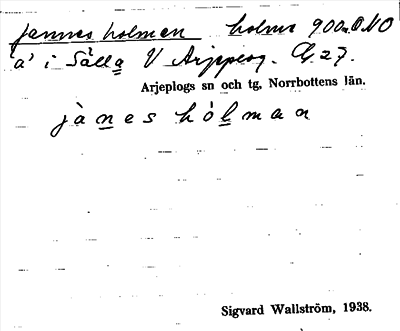 Jannes holmen holme 900m ONO
"a" i Sålla V Arjeplog. G. 27.
Arjeplogs sn och tg, Norrbottens län.
jànes hólman
Sigvard Wallström, 1938.